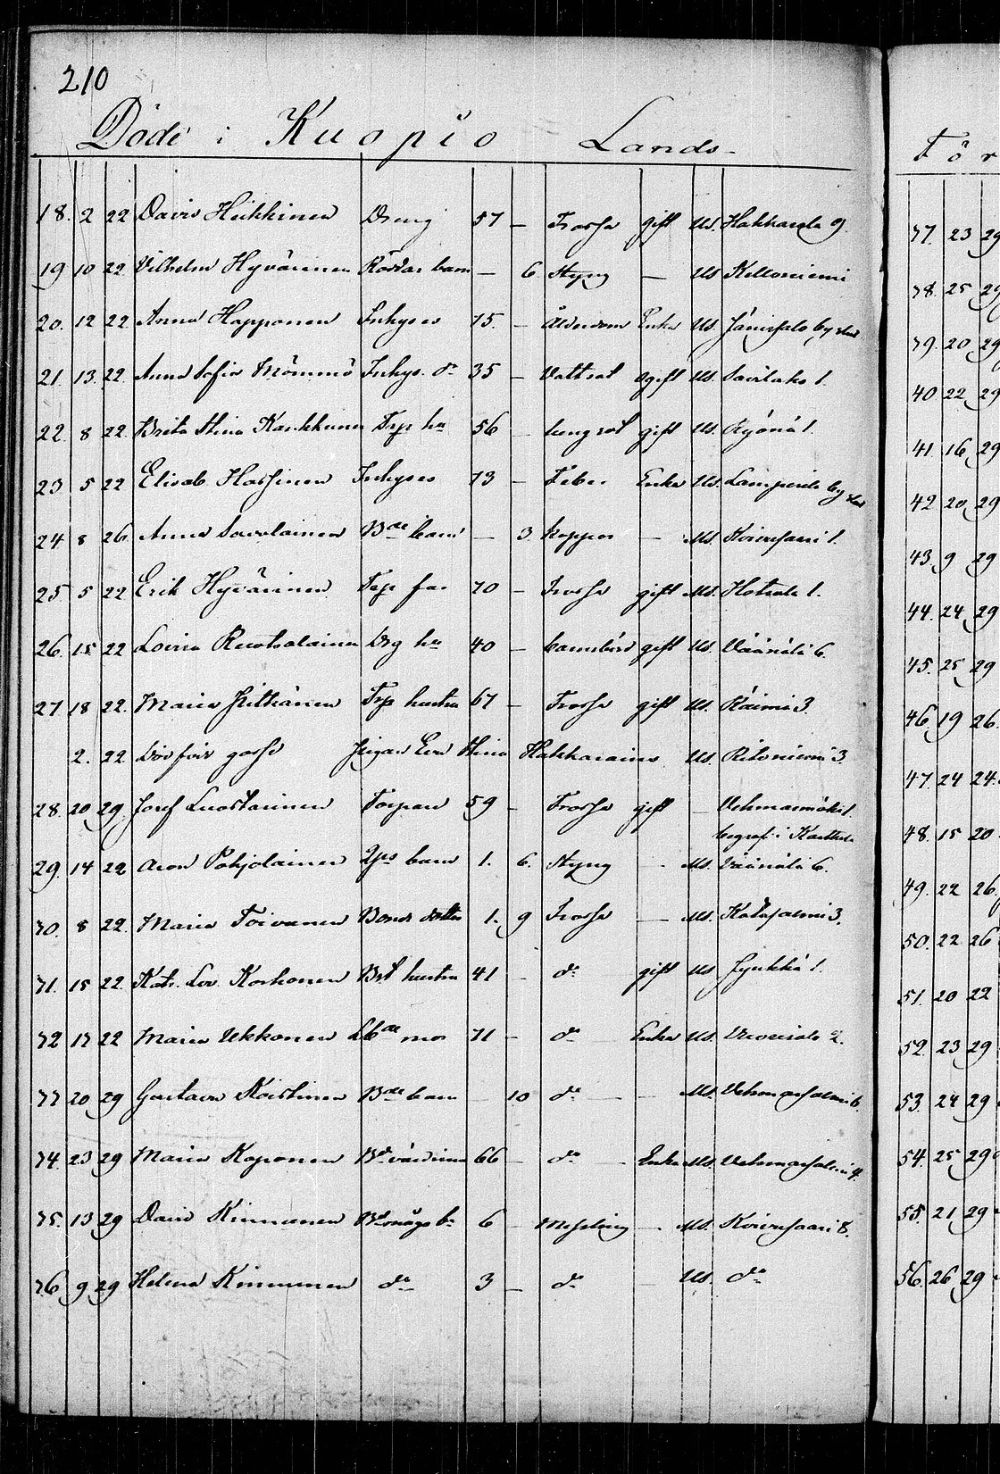 210
Döde i Kuopio Lands-
18. 2 22 David Heikkinen Dräng 57 - Frossa gift Us. Hakkarala 9.
19 10 22 Vilhelm Hyvärinen barn - 6 Styng - Us Kelloniemi
20. 12 22 Anna Happonen Inhyses 75. - Ålderdom Enka Us. Jänissalo
21. 13. 22. Anna Sofia Mömmö Inhys. dr 35 - Vattsot ogift Us. Savilaks 1.
22. 8 22. Brita Stina Kaukkunen Trp hu 56 lungsot gift Us. Ryönä 1.
23 5 22 Elisab Hassinen Inhyses 73 - Feber Enka Us. Lamperila
24 8 26. Anna Savolainen Bde barn - 3. koppor - Us. Koivusaari 1.
25 5 22 Erik Hyvärinen Trp far 70 - Frossa gift Us. Hotsola 1.
26. 15 22 Lovisa Ruotsalainen hu 40 - barnsbörd gift Us. Väänälä 6.
27 18 22. Maria Pitkänen Trp hustru 67 - Frossa gift Us. Räimä 3.
2. 22 Dödfödd gosse Pigan Eva Stina Hakkarainens Us. Ritoniemi 3.
28. 20 29. Josef Luostarinen Torpare 59 - Frossa gift - Vehmasmäki 1.
begraf. i Karttula
29. 14 22 Aron Pohjolainen barn 1. 6. Styng - Us. Väänälä 6.
30. 8 22. Maria Toivanen Bonde dotter 1. 9 Frossa - Us. Kotasalmi 3.
31. 15 22 Kat. Lov. Korhonen hustru 41 - do gift Us Jynkkä 1.
32 17 22 Maria Ukkonen mor 71 - do Enka Us. 2.
33 20 29 Gustava Koistinen Bde barn - 10 do - Us. Vehmersalmi 6.
34. 23 29 Maria Koponen 66 - do - Enka Us. Vehmersalmi 4.
35. 13 29 David Kinnunen 6 - Messling - Us. Koivusaari 8.
36 9 29 Helena Kinnunen do 3 - do - Us. do
För
37. 23 29
38. 25 29
39. 20 29
40 22 29
41. 16 29
42. 20 29
43. 9 29
44. 24 29
45. 25 29
46 19 26.
47 24 24.
48. 15 20
49. 22 26
50. 22 26
51. 20 22
52. 23 29
53. 24 29
54. 25 29
55. 21 29
56. 26 29